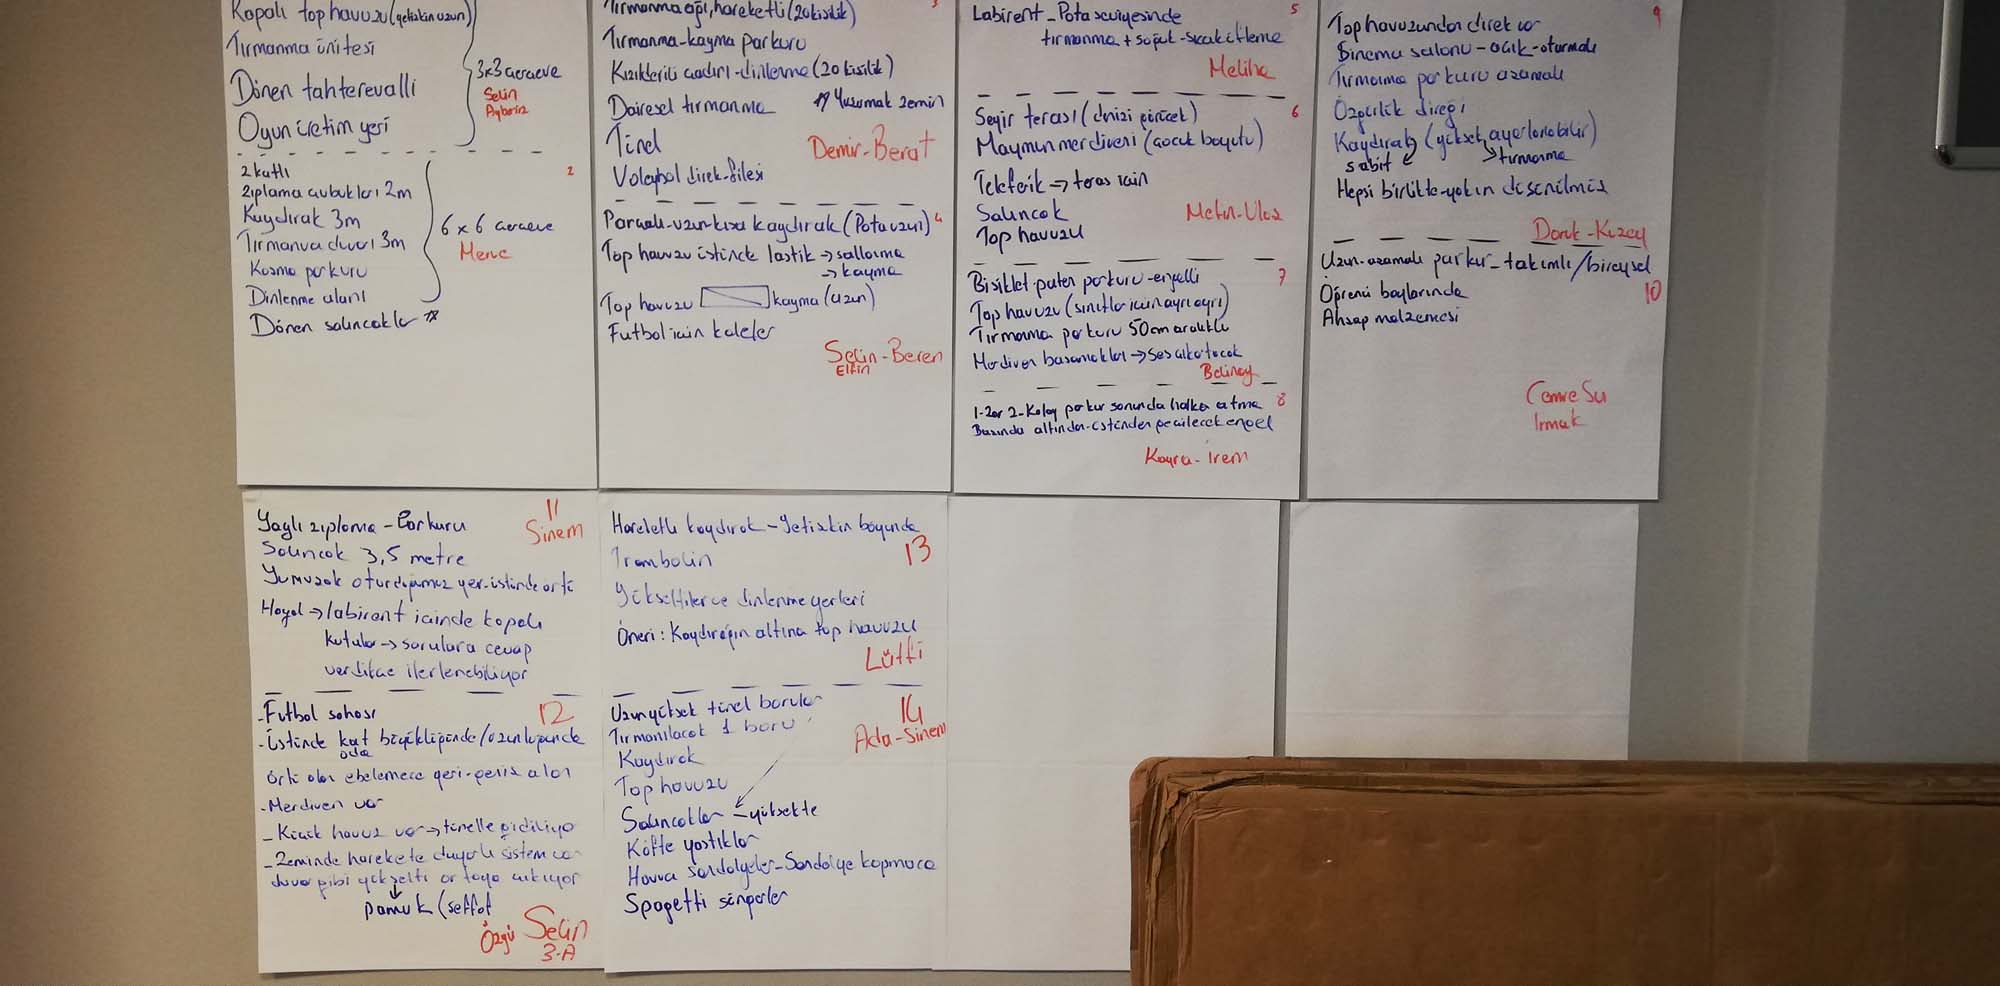 Kapalı top havuzu (yetişkin uzun)
Tırmanma ünitesi
Dönen tahterevalli
Oyun üretim yeri
3x3 çerçeve
Selin
2
2 katlı
Zıplama çubukları 2m
Kaydırak 3m
Tırmanma duvarı 3m
Koşma parkuru
Dinlenme alanı
Dönen salıncaklar
6x6 çerçeve
Tırmanma ağı, hareketli (20 kişilik)
3
Tırmanma-kayma parkuru
Kızılderili çadırı-dinlenme (20 kişilik)
Dairesel tırmanma
Yumuşak zemin
Tünel
Demir-Berat
Voleybol direk-filesi
Parçalı-uzun-kısa kaydırak (Pota uzun)
4
Top havuzu üstünde lastik → sallanma
→ kayma
Top havuzu kayma (uzun)
Futbol için kaleler
Selin-Beren
Elfin
Labirent - Pota seviyesinde
5
tırmanma + soğuk-sıcak üfleme
Meliha
Seyir terası (denizi görecek)
6
Maymun merdiveni (çocuk boyutu)
Teleferik → teras için
Salıncak
Metin-Ulaş
Top havuzu
Bisiklet-paten parkuru-engelli
7
Top havuzu (sınıflar için ayrı ayrı)
Tırmanma parkuru 50cm aralıklı
Merdiven basamakları → Ses çıkartacak
Belinay
1-Zor 2-Kolay parkur sonunda halka atma
8
Bazında altından-üstünden geçilecek engel
Kayra-İrem
Top havuzunda direk var
9
Sinema salonu-açık-oturmalı
Tırmanma parkuru aşamalı
Özgürlük direği
Kaydırak (yüksek, ayarlanabilir)
sabit
→ tırmanma
Hepsi birlikte-yakın düşünülmüş
Doruk-Kuzey
Uzun-aşamalı parkur-takımlı/bireysel
Öğrenci boylarında
10
Ahşap malzemesi
Cemre Su
Irmak
11
Sinem
Yaylı zıplama - Parkuru
Salıncak 3,5 metre
Yumuşak oturduğumuz yer-üstünde örtü
Hayal → labirent içinde kapalı
kutular → sorulara cevap
verdikçe ilerlenebiliyor
- Futbol sahası
12
- Üstünde kat büyüklüğünde/uzunluğunda
oda
örtü olan ebelemece yeri-geniş alan
- Merdiven var
- Küçük havuz var → tünelle gidiliyor
- Zeminde harekete duyarlı sistem var
duvar gibi yükselti ortaya çıkıyor
pamuk (şeffaf
Özgü
Selin
3-A
Hareketli kaydırak - Yetişkin boyunda
13
Trambolin
Yükseltilerce dinlenme yerleri
Öneri: Kaydırağın altına top havuzu
Lütfi
Uzun yüksek tünel borular
14
Tırmanılacak 1 boru
Ada-Sinem
Kaydırak
Top havuzu
Salıncaklar - yüksekte
Köfte yastıklar
Havva sandalyeler-Sandalye kapmaca
Spagetti süngerler